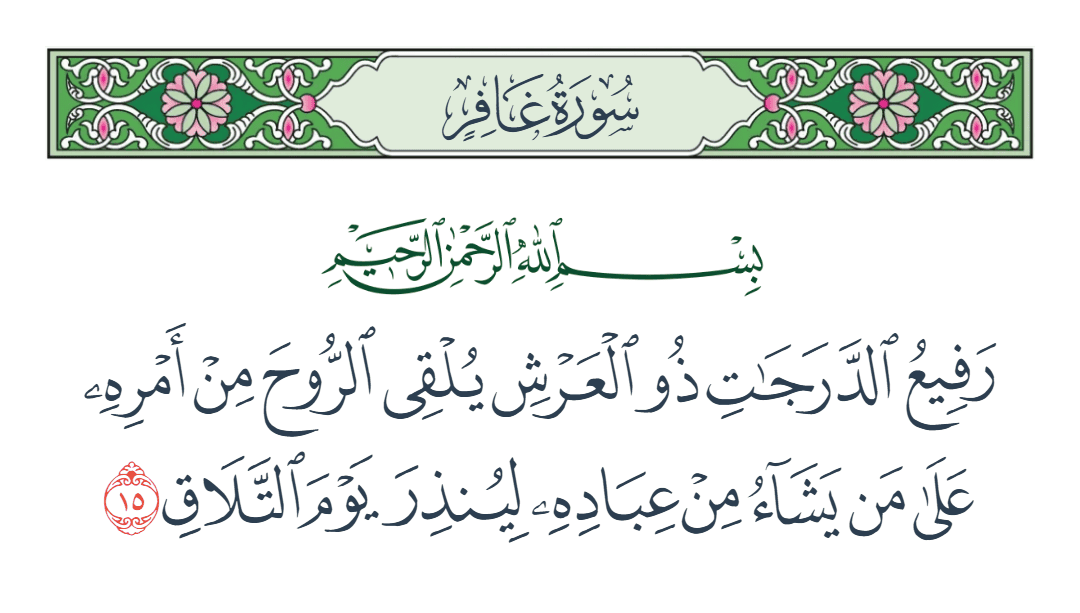 سُورَةُ غَافِرٍ
بِسْمِ ٱللَّهِ ٱلرَّحْمَٰنِ ٱلرَّحِيمِ
رَفِيعُ ٱلدَّرَجَٰتِ ذُو ٱلْعَرْشِ يُلْقِى ٱلرُّوحَ مِنْ أَمْرِهِۦ
عَلَىٰ مَن يَشَآءُ مِنْ عِبَادِهِۦ لِيُنذِرَ يَوْمَ ٱلتَّلَاقِ ١٥